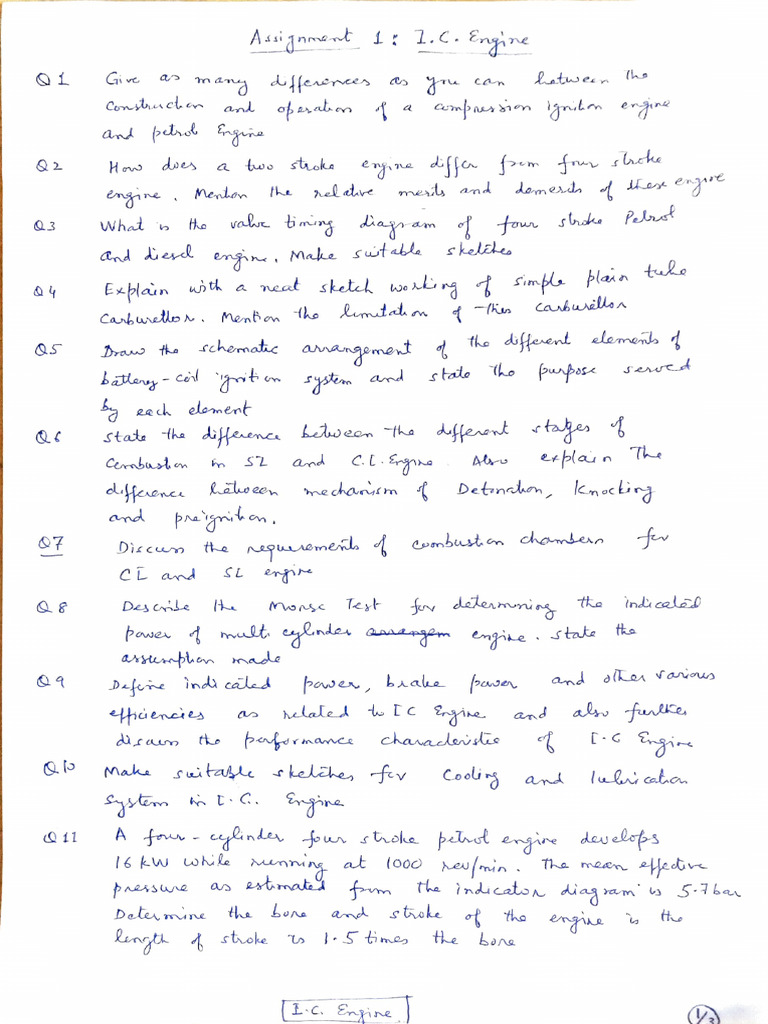 Assignment 1: I.C. Engine
Q1 Give as many differences as you can between the
Construction and operation of a compression ignition engine
and petrol Engine
Q2 How does a two stroke engine differ from four stroke
engine. Mention the relative merits and demerits of these engine
Q3 What is the valve timing diagram of four stroke Petrol
and diesel engine. Make suitable sketches
Q4 Explain with a neat sketch working of simple plain tube
Carburettor. Mention the limitation of this carburettor
Q5 Draw the schematic arrangement of the different elements of
battery-coil ignition system and state the purpose served
by each element
Q6 State the difference between the different stages of
Combustion in SI and C.I. Engine. Also explain The
difference between mechanism of Detonation, Knocking
and preignition.
Q7 Discuss the requirements of combustion chambers for
CI and SI engine
Q8 Describe the Morse Test for determining the indicated
power of multi cylinder arrangem engine. State the
assumption made
Q9 Define indicated power, brake power and other various
efficiencies as related to IC Engine and also further
discuss the performance characteristic of I.C Engine
Q10 Make suitable sketches for Cooling and lubrication
System in I.C. Engine
Q11 A four-cylinder four stroke petrol engine develops
16 kW while running at 1000 rev/min. The mean effective
pressure as estimated from the indicator diagram is 5.7 bar
Determine the bore and stroke of the engine is the
length of stroke is 1.5 times the bore
I.C. Engine
1/3